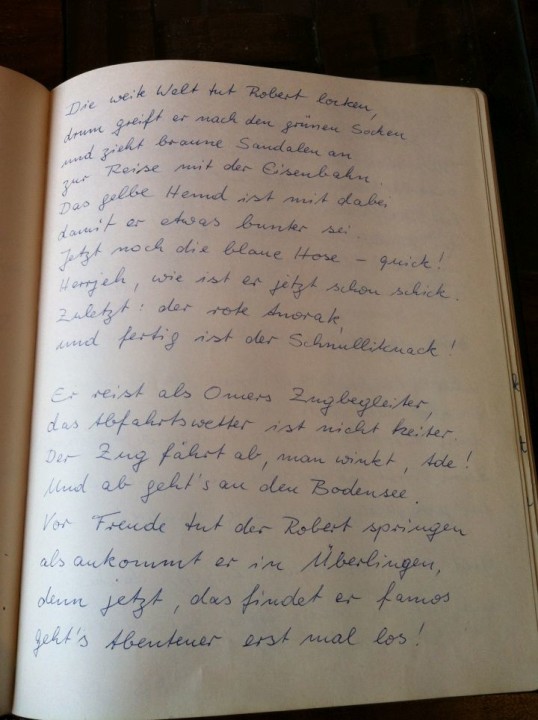 Die weite Welt tut Robert locken,
drum greift er nach den grünen Socken
und zieht braune Sandalen an
zur Reise mit der Eisenbahn.
Das gelbe Hemd ist mit dabei
damit er etwas bunter sei.
Jetzt noch die blaue Hose – quick!
Herrjeh, wie ist er jetzt schon schick.
Zuletzt: der rote Anorak,
und fertig ist der Schnulliknack!
Er reist als Omers Zugbegleiter,
das Abfahrtswetter ist nicht heiter.
Der Zug fährt ab, man winkt, Ade!
Und ab geht's an den Bodensee.
Vor Freude tut der Robert springen
als ankommt er in Überlingen,
denn jetzt, das findet er famos
geht's Abenteuer erst mal los!